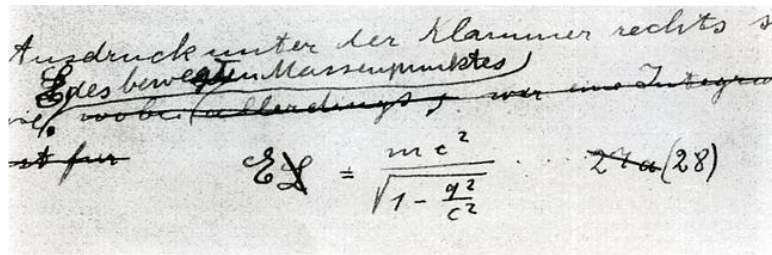 Ausdruck unter der Klammer rechts
E des bewegten Massenpunktes
wobei (allerdings, war eine Integra
ist für
E = mc² / √(1 − q²/c²) ... 27a (28)